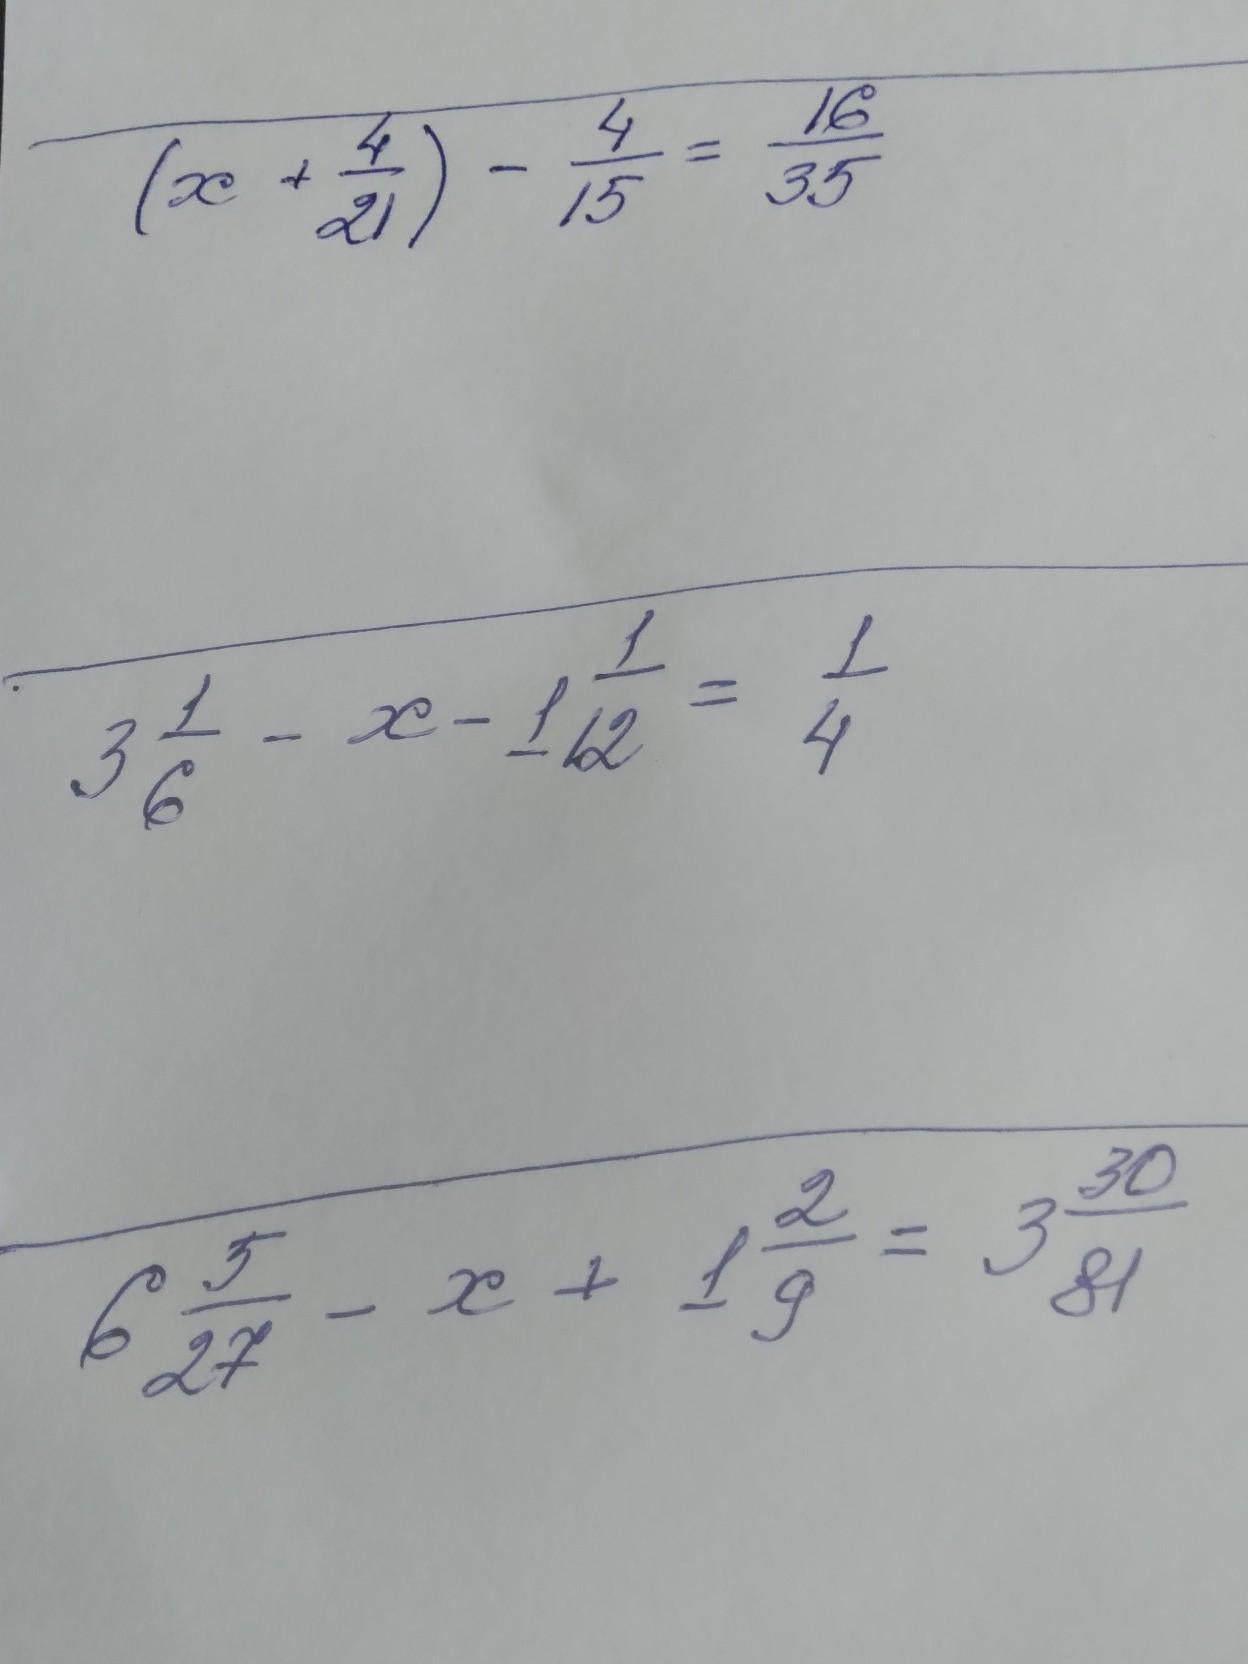 (x + 4/21) - 4/15 = 16/35
3 1/6 - x - 1 1/12 = 1/4
6 5/27 - x + 1 2/9 = 3 30/81